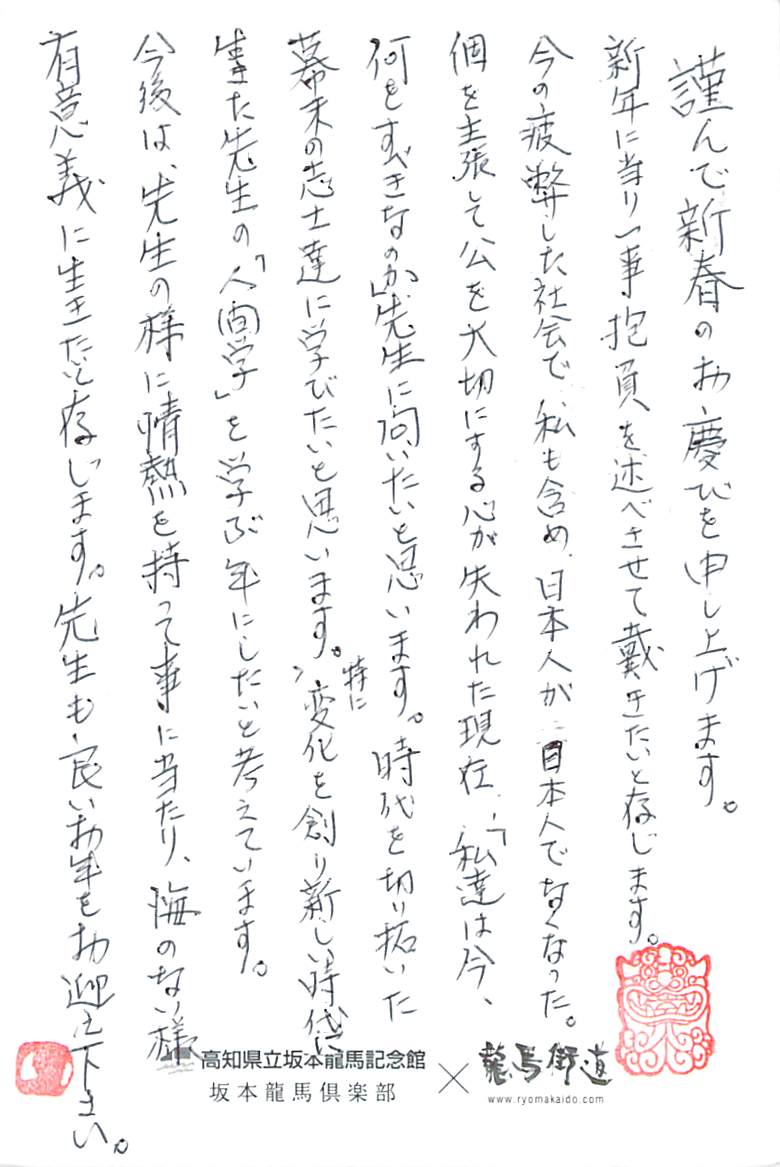 謹んで新春のお慶びを申し上げます。
新年に当り一事抱負を述べさせて戴きたいと存じます。
今の疲弊した社会で、私も含め、日本人が日本人でなくなった。
個を主張して公を大切にする心が失われた現在、「私達は今、
何をすべきなのか」先生に問いたいと思います。時代を切り拓いた
幕末の志士達に学びたいと思います。特に、変化を創り新しい時代に
生きた先生の「人間学」を学ぶ年にしたいと考えています。
今後は、先生の様に情熱を持って事に当たり、悔のない様
有意義に生きたいと存じます。先生も良いお年をお迎え下さい。
高知県立坂本龍馬記念館
坂本龍馬倶楽部
×
龍馬街道
www.ryomakaido.com